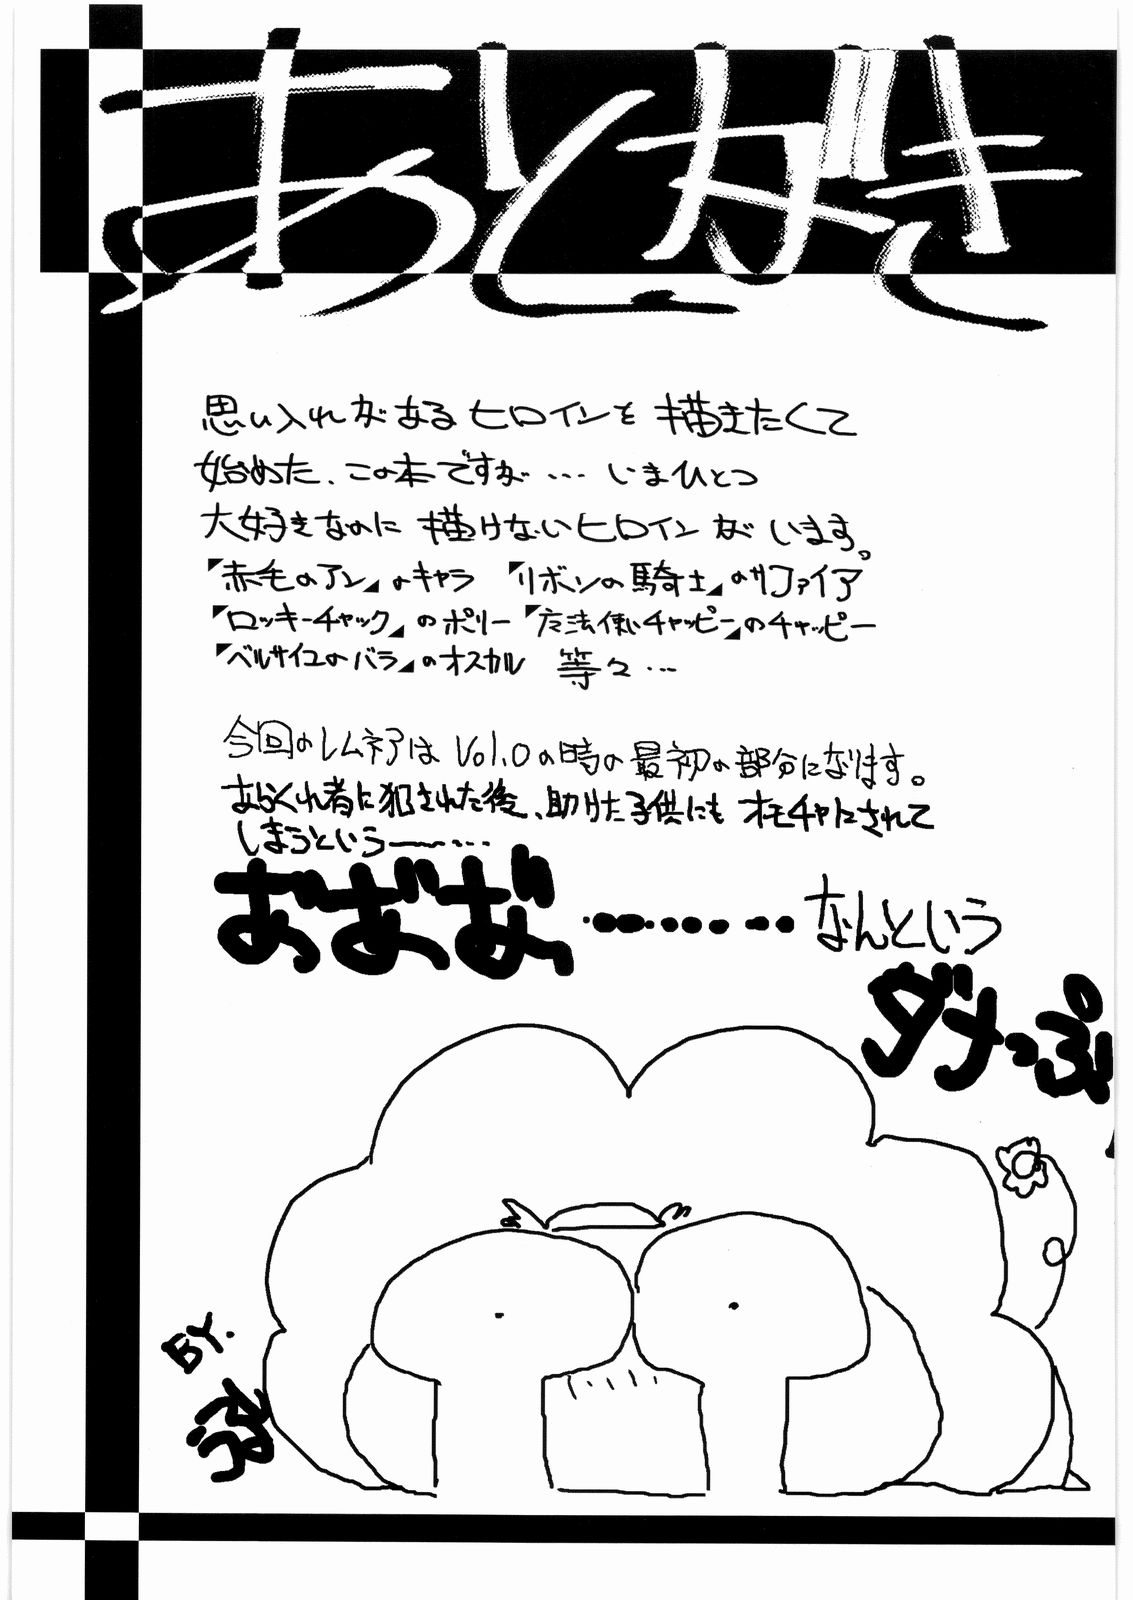 あとがき
思い入れがあるヒロインを描きたくて
始めた、この本ですが…いまひとつ
大好きなのに描けないヒロインがいます。
「赤毛のアン」のキャラ 「リボンの騎士」のサファイア
「ロッキーチャック」のポリー「魔法使いチャッピー」のチャッピー
「ベルサイユのバラ」のオスカル 等々…
今回のレムネアはVol.0の時の最初の部分になります。
あらくれ者に犯された後、助けた子供にもオモチャにされて
しまうという――…
おばば…………なんという
ダメっぷり
BY.